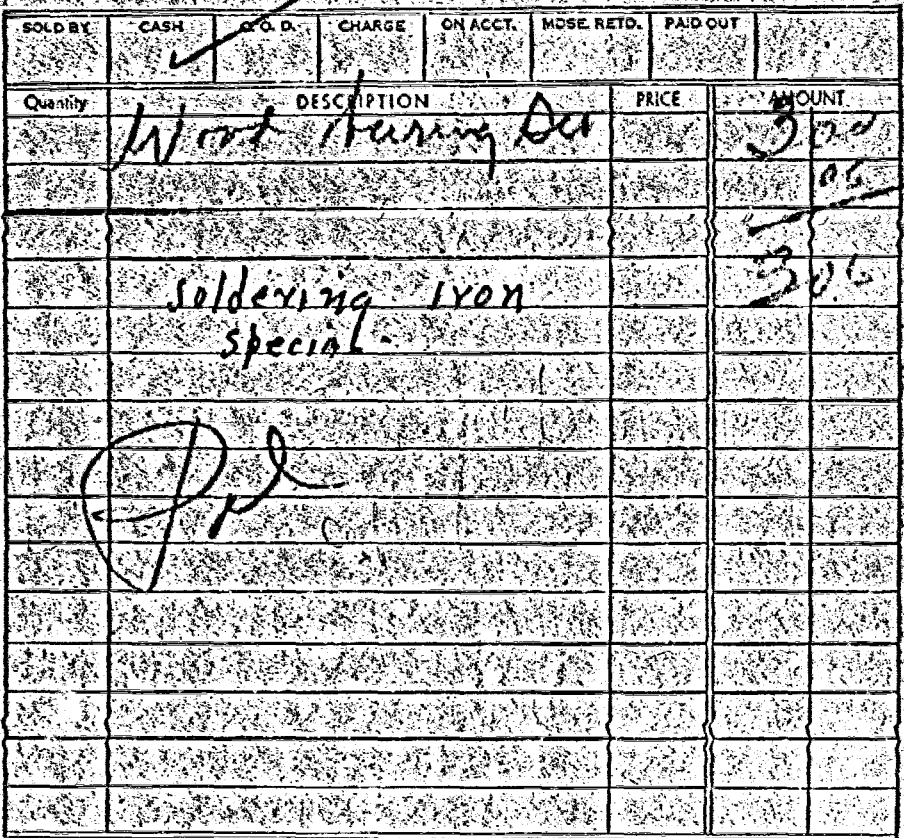 SOLD BY CASH C. O. D. CHARGE ON ACCT. MDSE. RETD. PAID OUT
Quantity DESCRIPTION PRICE AMOUNT
Wood Burning Set 3 00
06
3 06
Soldering Iron
Special
Pd